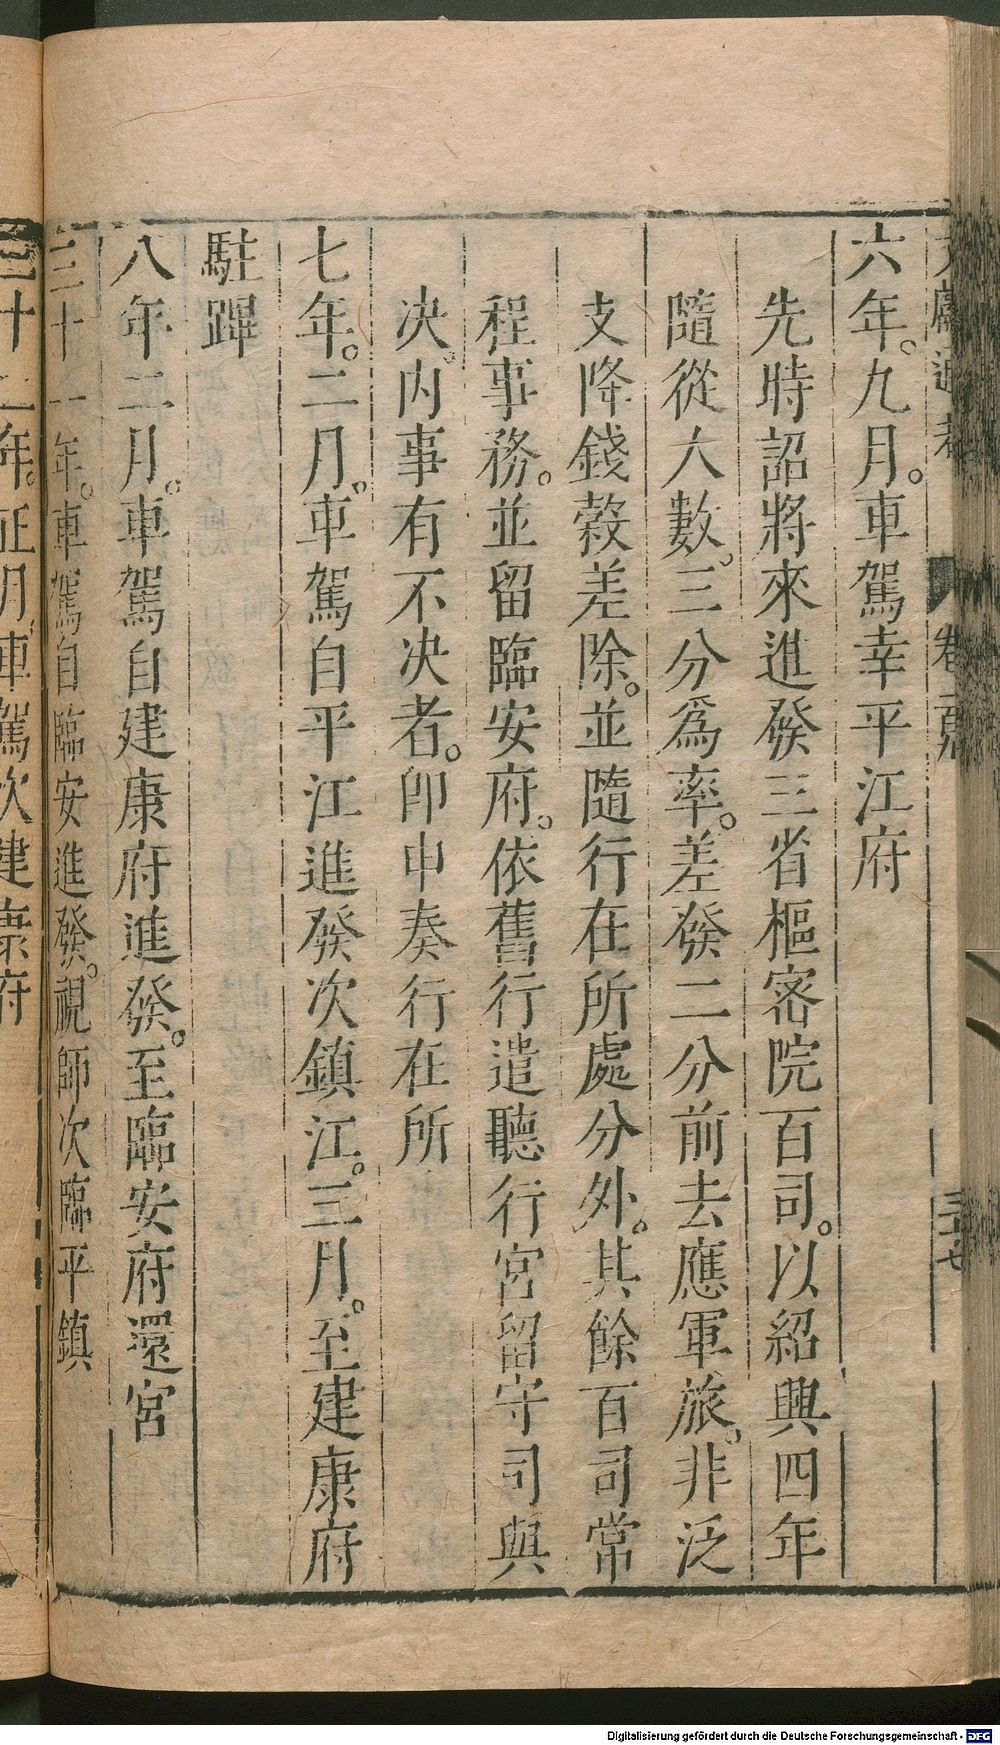 六年。九月。車駕幸平江府
先時詔將來進發三省樞密院百司。以紹興四年
隨從人數。三分爲率。差發二分前去應軍旅。非泛
支降錢穀差除。並隨行在所處分外。其餘百司常
程事務。並留臨安府。依舊行遣聽行宮留守司與
决。内事有不决者。卽申奏行在所
七年。二月。車駕自平江進發次鎮江。三月。至建康府
駐蹕
八年二月。車駕自建康府進發。至臨安府還宮
三十一年。車駕自臨安進發。視師次臨平鎮
三十二年。正月。車駕次建康府
Digitalisierung gefördert durch die Deutsche Forschungsgemeinschaft - DFG